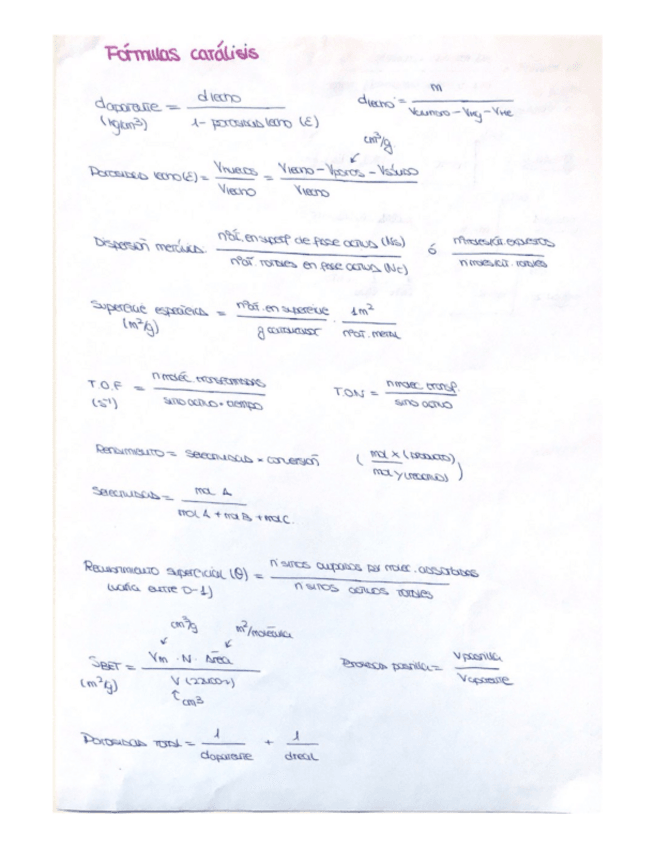 Fórmulas catálisis
daparente = dlecho / 1 - porosidad lecho (ε)
(kg/cm³)
dlecho = m / Vcilindro - VHg - VHe
cm³/g
Porosidad lecho (ε) = Vhuecos / Vlecho = Vlecho - Vporos - Vsólido / Vlecho
Dispersión metálica: nºát. en superf de fase activa (Ns) / nºát. totales en fase activa (Nc) ó n totales
Superficie específica = nºát. en superficie / g catalizador · 1m² / nºát. metal
(m²/g)
T.O.F = n molec. transformadas / sitio activo · tiempo
(s⁻¹)
T.O.N = n molec. transf. / sitio activo
Rendimiento = selectividad × conversión ( mol X (producto) / mol y (reactivo) )
Selectividad = mol A / mol A + mol B + mol C
Recubrimiento superficial (θ) = n sitios ocupados por molec. adsorbidas / n sitios activos totales
(varía entre 0-1)
cm³/g m²/molécula
SBET = Vm · N · Área / V
(m²/g)
cm³
pastilla = Vpastilla / Vaparente
Porosidad total = 1 / daparente + 1 / dreal